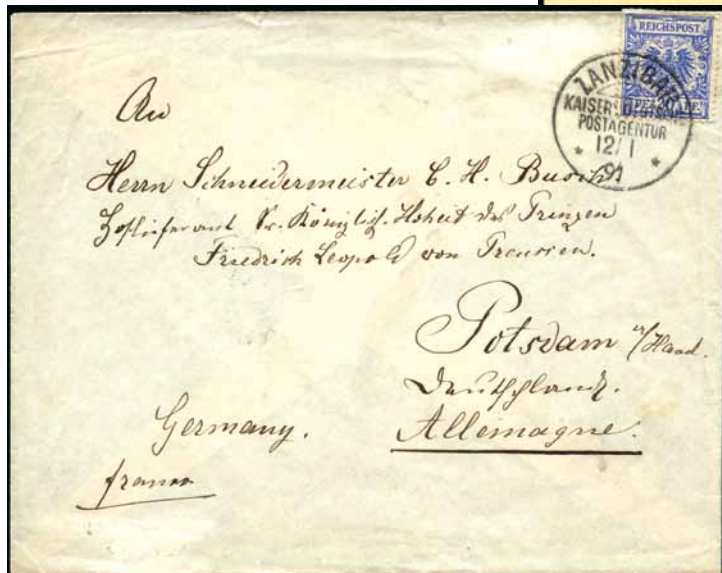 REICHSPOST
ZANZIBAR
KAISERL. DEUTSCHE
POSTAGENTUR
12/1
91
An
Herrn Schneidermeister C. H. Busch
Hoflieferant Sr. Königlich. Hoheit des Prinzen
Friedrich Leopold von Preussen.
Potsdam
Deutschland.
Germany.
Allemagne.
franco